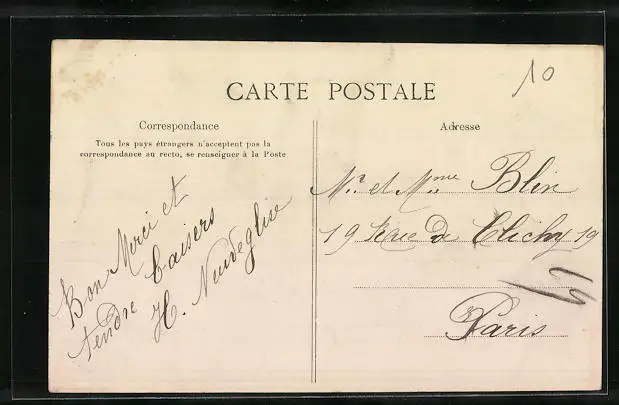 10
CARTE POSTALE
Correspondance
Tous les pays étrangers n'acceptent pas la
correspondance au recto, se renseigner à la Poste
Bon Merci et
tendre baisers
H. Neuveglise
Adresse
Mr et Mme Blin
19 Rue de Clichy 19
Paris